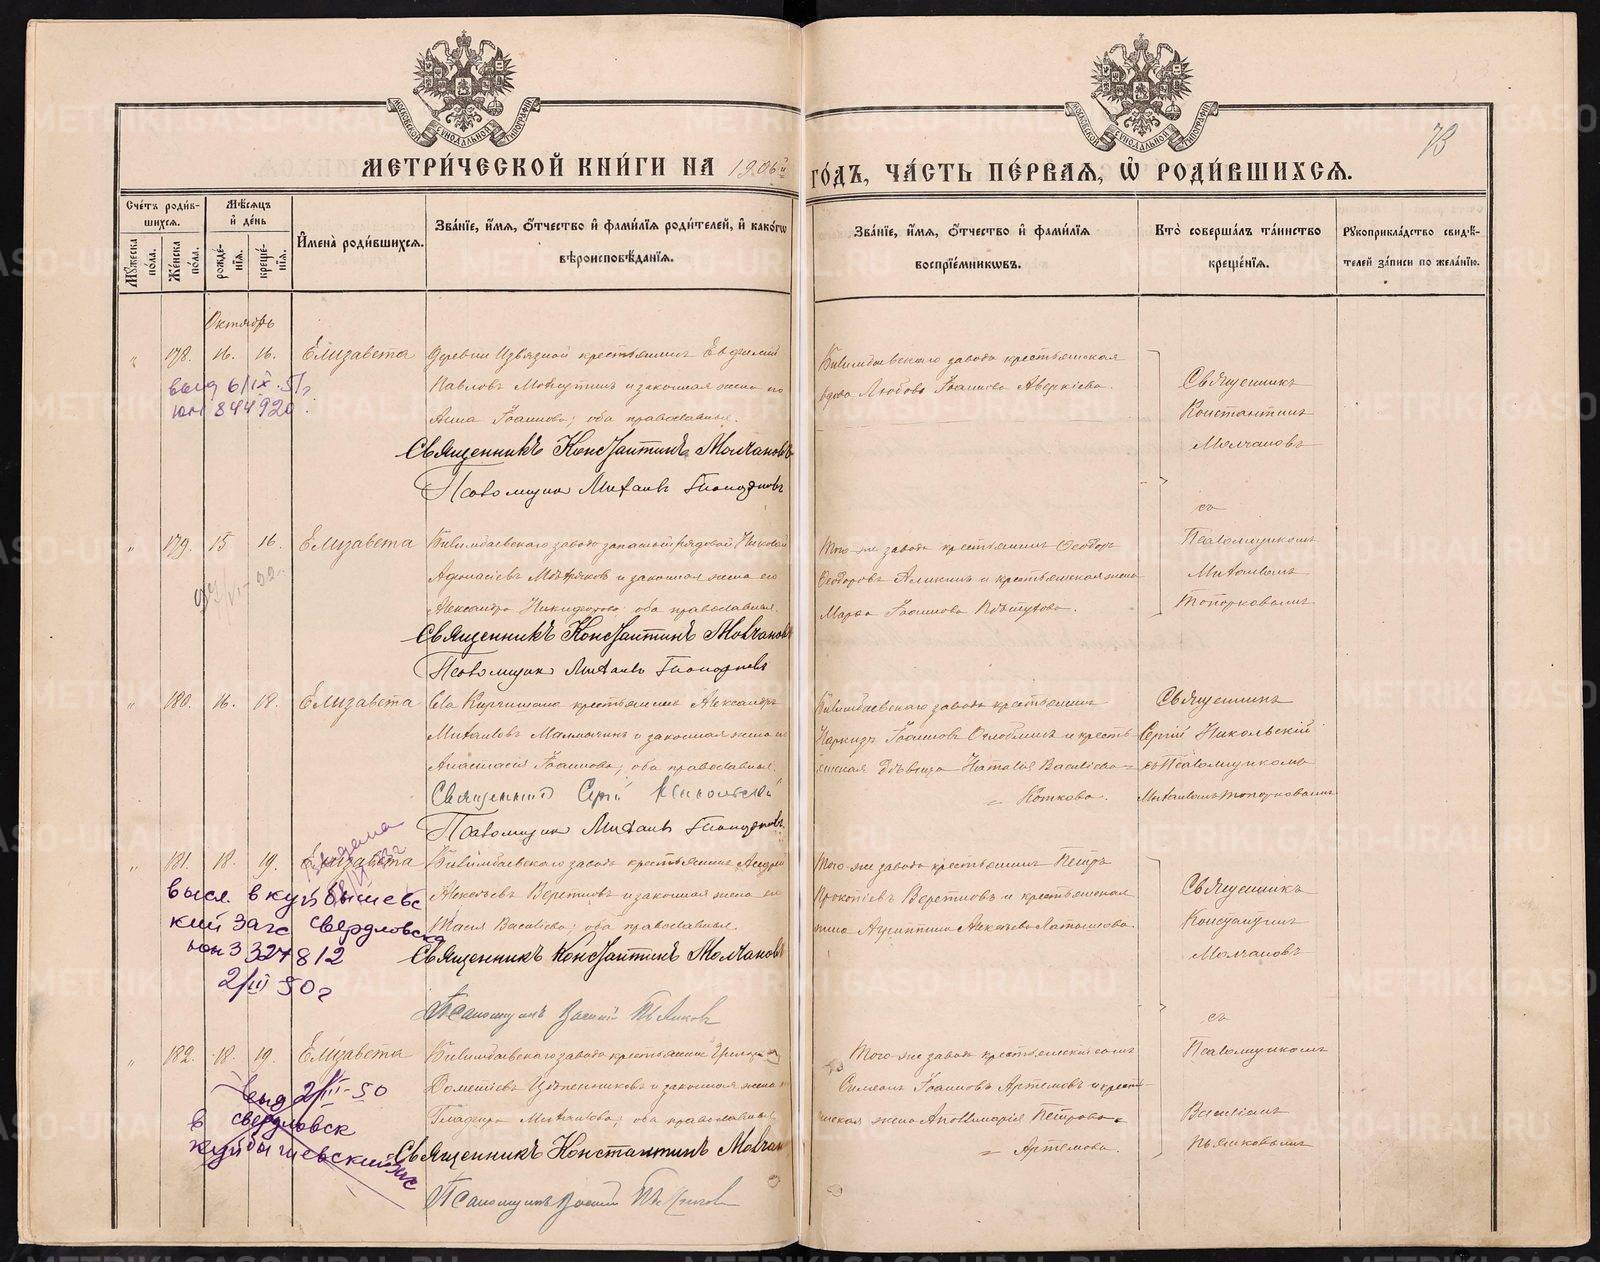 МОСКОВСКОЙ СѴНОДАЛЬНОЙ ТИПОГРАФІИ
МОСКОВСКОЙ СѴНОДАЛЬНОЙ ТИПОГРАФІИ
78
МЕТРИ́ЧЕСКОЙ КНИ́ГИ НА 1906й ГО́ДЪ, ЧА́СТЬ ПЕ́РВАЯ, Ѡ҆ РОДИ́ВШИХСЯ.
Сче́тъ роди́вшихся.
Мꙋ́жеска по́ла.
Же́нска по́ла.
Мѣ́сяцъ и҆ де́нь
рожде́нїя.
креще́нїя.
И҆мена̀ роди́вшихся.
Зва́нїе, и҆́мя, ѻ҆́тчество и҆ фами́лїя роди́телей, и҆ како́гѡ вѣроисповѣ́данїя.
Зва́нїе, и҆́мя, ѻ҆́тчество и҆ фами́лїя воспрїе́мникѡвъ.
Кто̀ соверша́лъ та́инство креще́нїя.
Рꙋкоприкла́дство свидѣ́телей за́писи по жела́нїю.
Октябрь
178. 16. 16. Елизавета
крестьянинъ
Павловъ и законная жена его
Анна Іоаннова; оба православные.
Священникъ Константинъ Молчановъ
Псаломщикъ Михаилъ Топорковъ
Билимбаевскаго завода крестьянская
вдова Любовь Іоаннова Аверкіева.
Священникъ
Константинъ
Молчановъ
съ
Псаломщикомъ
Михаиломъ
Топорковымъ
выд 6/IX-51г.
юн 844920.
179. 15 16. Елизавета
Билимбаевскаго завода запасный рядовой Николай
Афонасіевъ и законная жена его
Александра Никифорова оба православные.
Священникъ Константинъ Молчановъ
Псаломщикъ Михаилъ Топорковъ
Того-же завода крестьянинъ Ѳеодоръ
Ѳеодоровъ Аликинъ и крестьянская жена
Марѳа Іоаннова
180. 16. 18. Елизавета
Села Киргишана крестьянинъ Александръ
Михаиловъ и законная жена его
Анастасія Іоаннова; оба православные.
Священникъ Сергій Никольскій
Псаломщикъ Михаилъ Топорковъ
Билимбаевскаго завода крестьянинъ
Іоанновъ и крестьянская дѣвица Наталія Васильева =
= Коткова.
Священникъ
Сергій Никольскій
съ Псаломщикомъ
Михаиломъ Топорковымъ
181. 18. 19. Елизавета
Билимбаевскаго завода крестьянинъ Андрей
Алексѣевъ Веретновъ и законная жена его
Васильева; оба православные.
Священникъ Константинъ Молчановъ
Псаломщикъ Василій Пьянковъ
Того-же завода крестьянинъ Петръ
Прокопіевъ Веретновъ и крестьянская
жена Агриппина Алексѣева Латышова.
Священникъ
Константинъ
Молчановъ
съ
Псаломщикомъ
Василіемъ
Пьянковымъ
высл. в куйбышевс
кий Загс Свердловска
юн 3327812
2/III 50г
182. 18. 19. Елизавета
Билимбаевскаго завода крестьянинъ
Дометіевъ и законная жена
Михаилова; оба православные
Священникъ Константинъ Молчановъ
Псаломщикъ Василій Пьянковъ
Того-же завода крестьянскій сынъ
Симеонъ Іоанновъ Артемовъ и крестьянская жена Аполлинарія Петрова =
= Артемова.
выд 2/III-50
в свердловск
куйбышевский загс
METRIKI.GASO-URAL.RU